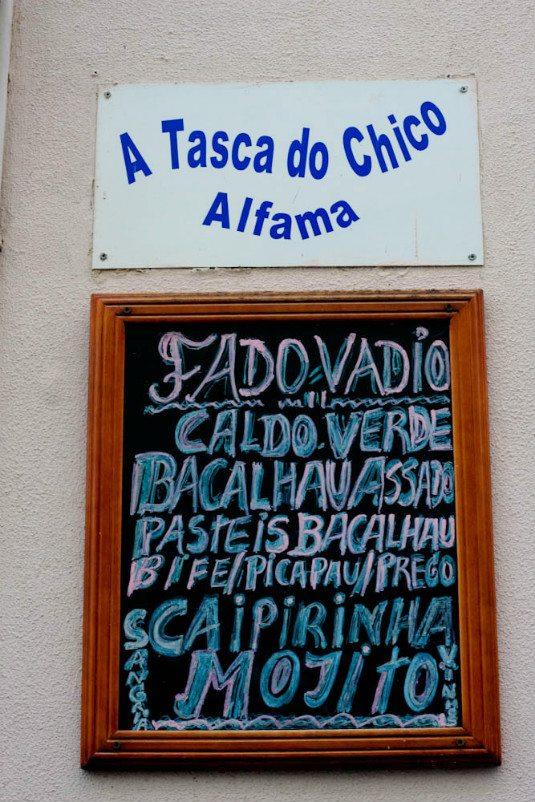 A Tasca do Chico
Alfama
FADO=VADIO
CALDO.VERDE
BACALHAU ASSADO
PASTEIS BACALHAU
BIFE/PICAPAU/PREGO
CAIPIRINHA
MOJITO
SANGRIA
VINHO